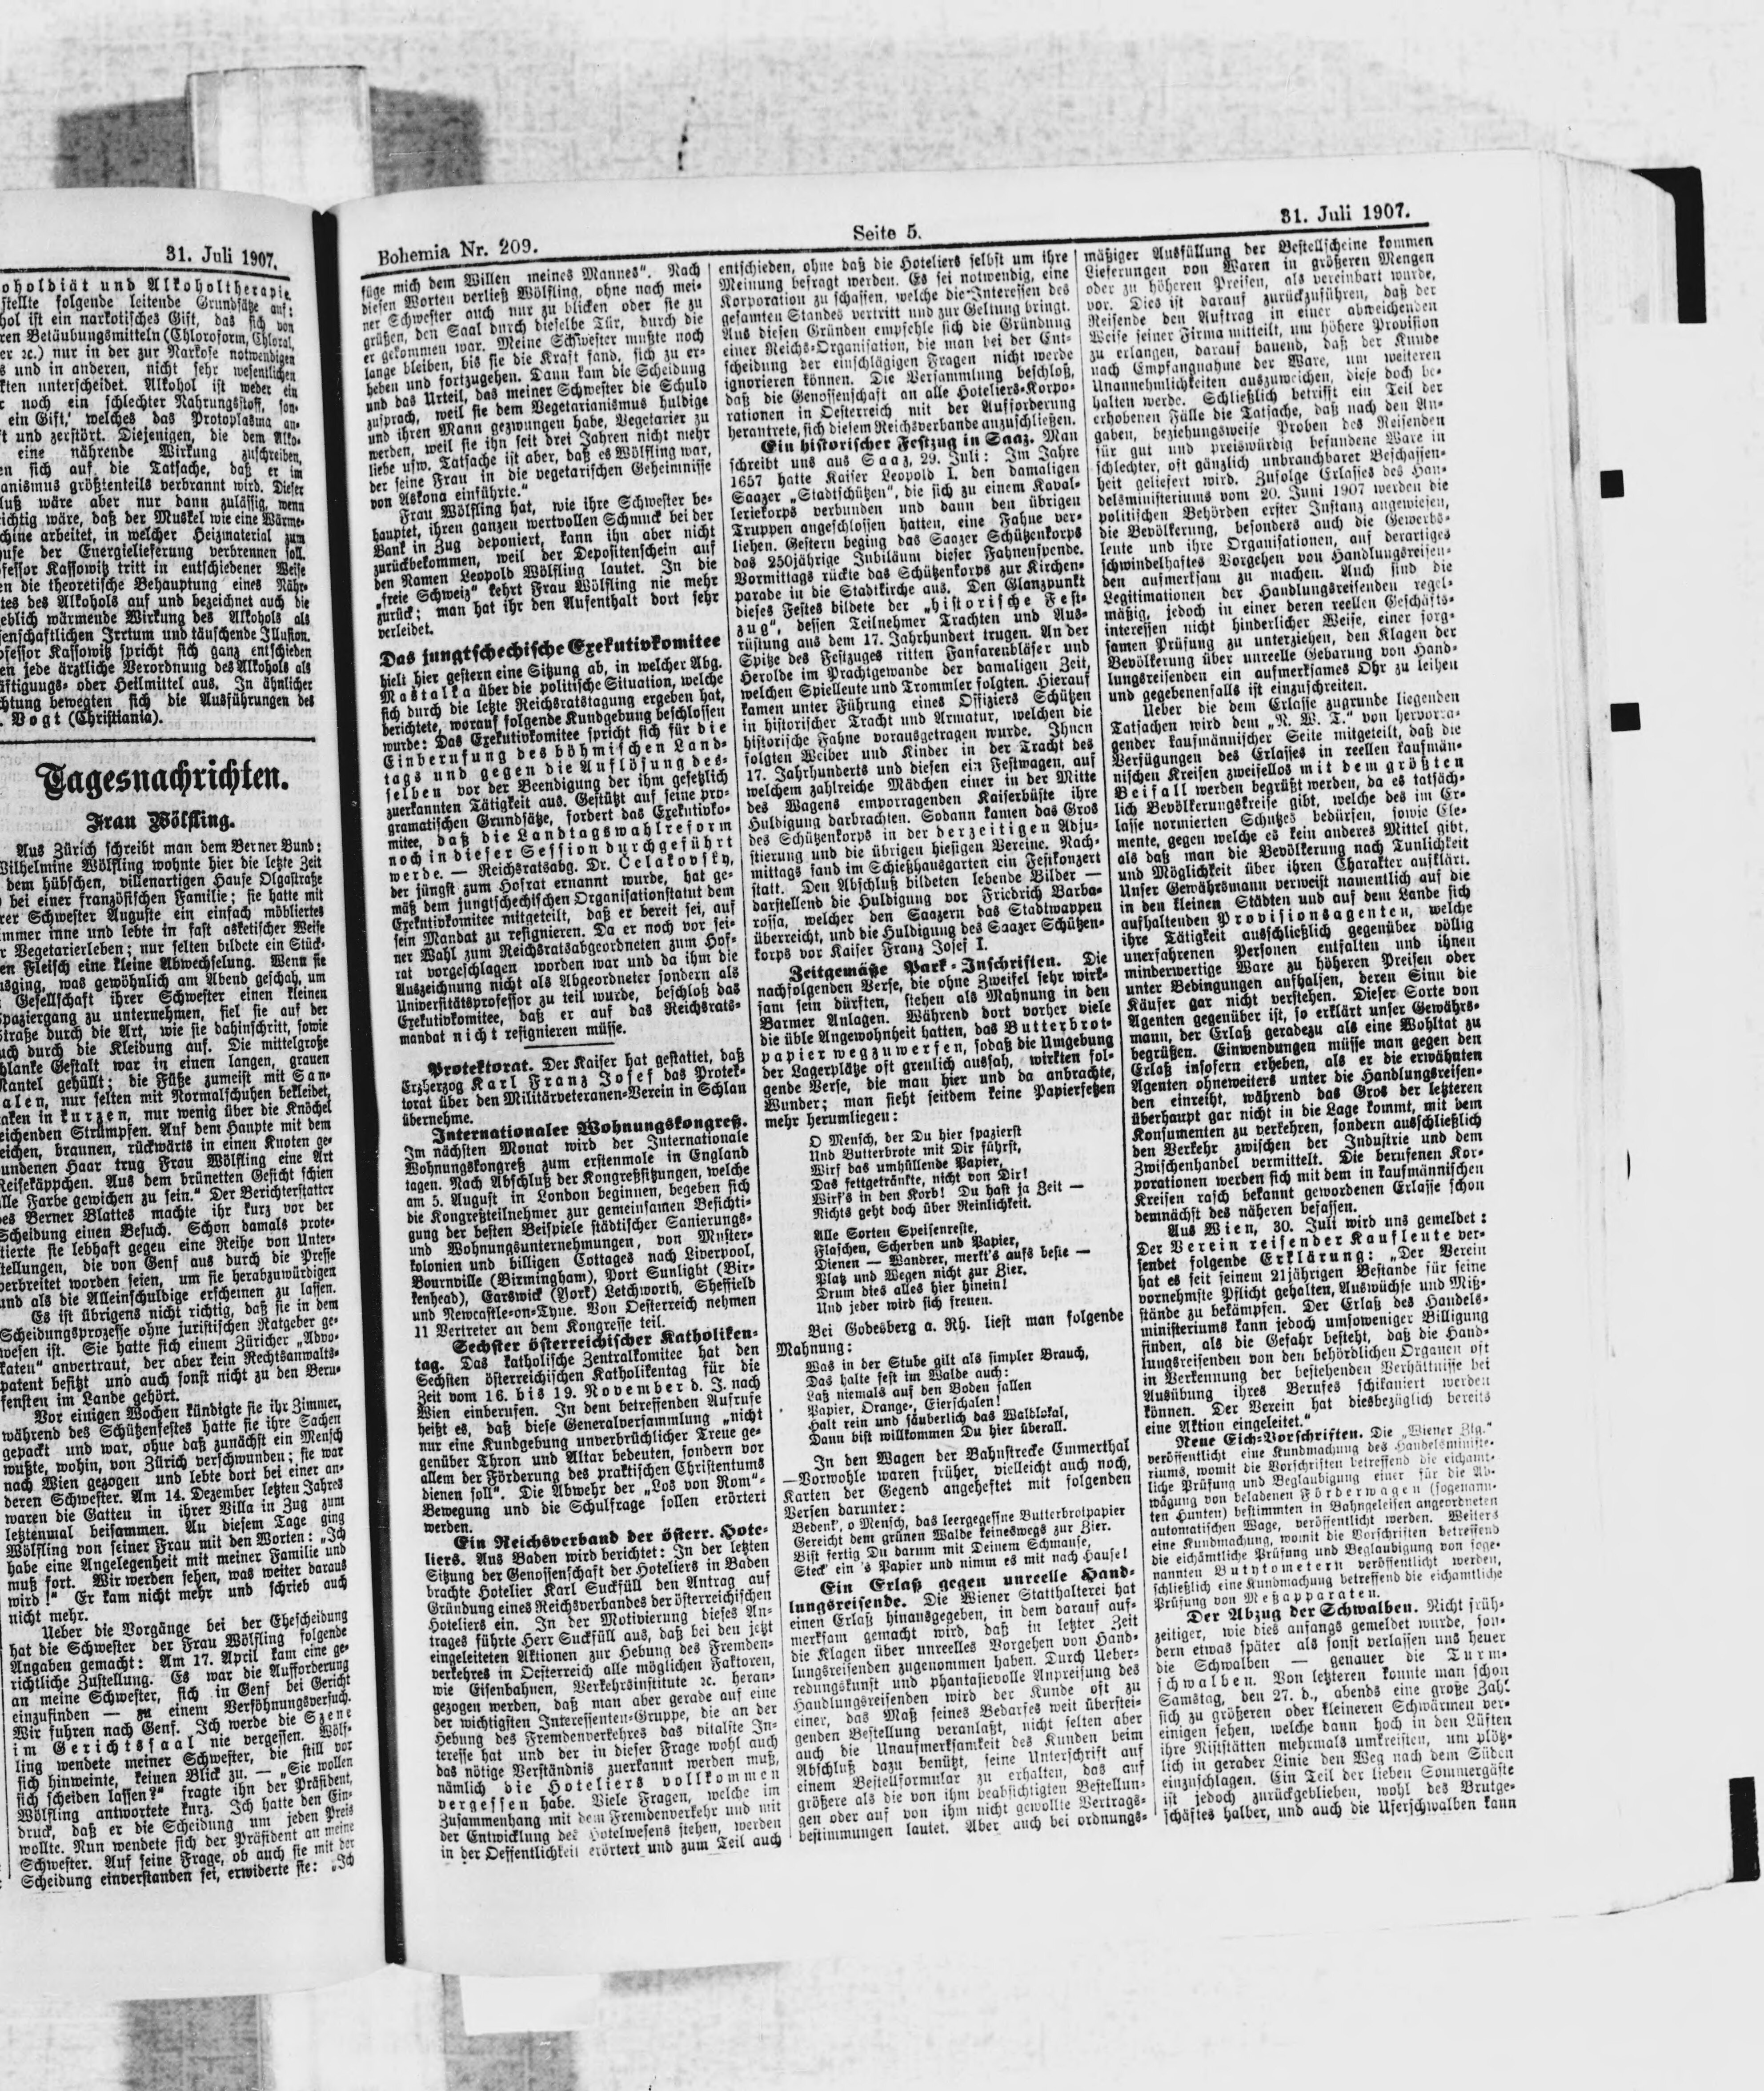 31. Juli 1907.
oholdiät und Alkoholtherapie
stellte folgende leitende Grundsätze auf:
hol ist ein narkotisches Gift, das sich von
ren Betäubungsmitteln (Chloroform, Chloral,
er ꝛc.) nur in der zur Narkose notwendigen
s und in anderen, nicht sehr wesentlichen
kten unterscheidet. Alkohol ist weder ein
r noch ein schlechter Nahrungsstoff, son-
ein Gift, welches das Protoplasma an-
t und zerstört. Diejenigen, die dem Alko-
eine nährende Wirkung zuschreiben,
en sich auf die Tatsache, daß er im
anismus größtenteils verbrannt wird. Dieser
luß wäre aber nur dann zulässig, wenn
ichtig wäre, daß der Muskel wie eine Wärme-
chine arbeitet, in welcher Heizmaterial zum
ufe der Energielieferung verbrennen soll.
fessor Kassowitz tritt in entschiedener Weise
en die theoretische Behauptung eines Nähr-
tes des Alkohols auf und bezeichnet auch die
eblich wärmende Wirkung des Alkohols als
enschaftlichen Irrtum und täuschende Illusion.
ofessor Kassowitz spricht sich ganz entschieden
en jede ärztliche Verordnung des Alkohols als
äftigungs- oder Heilmittel aus. In ähnlicher
chtung bewegten sich die Ausführungen des
. Vogt (Christiania).
Tagesnachrichten.
Frau Wölfling.
Aus Zürich schreibt man dem Berner Bund:
Wilhelmine Wölfling wohnte hier die letzte Zeit
dem hübschen, villenartigen Hause Olgastraße
bei einer französischen Familie; sie hatte mit
rer Schwester Auguste ein einfach möbliertes
immer inne und lebte in fast asketischer Weise
r Vegetarierleben; nur selten bildete ein Stück-
en Fleisch eine kleine Abwechselung. Wenn sie
usging, was gewöhnlich am Abend geschah, um
Gesellschaft ihrer Schwester einen kleinen
Spaziergang zu unternehmen, fiel sie auf der
Straße durch die Art, wie sie dahinschritt, sowie
uch durch die Kleidung auf. Die mittelgroße
hlanke Gestalt war in einen langen, grauen
Mantel gehüllt; die Füße zumeist mit San-
alen, nur selten mit Normalschuhen bekleidet,
aken in kurzen, nur wenig über die Knöchel
eichenden Strümpfen. Auf dem Haupte mit dem
eichen, braunen, rückwärts in einen Knoten ge-
undenen Haar trug Frau Wölfling eine Art
Reisekäppchen. Aus dem brünetten Gesicht schien
lle Farbe gewichen zu sein." Der Berichterstatter
es Berner Blattes machte ihr kurz vor der
Scheidung einen Besuch. Schon damals prote-
tierte sie lebhaft gegen eine Reihe von Unter-
tellungen, die von Genf aus durch die Presse
verbreitet worden seien, um sie herabzuwürdigen
und als die Alleinschuldige erscheinen zu lassen.
Es ist übrigens nicht richtig, daß sie in dem
Scheidungsprozesse ohne juristischen Ratgeber ge-
wesen ist. Sie hatte sich einem Züricher „Advo-
katen" anvertraut, der aber kein Rechtsanwalts-
patent besitzt und auch sonst nicht zu den Beru-
fensten im Lande gehört.
Vor einigen Wochen kündigte sie ihr Zimmer,
während des Schützenfestes hatte sie ihre Sachen
gepackt und war, ohne daß zunächst ein Mensch
wußte, wohin, von Zürich verschwunden; sie war
nach Wien gezogen und lebte dort bei einer an-
deren Schwester. Am 14. Dezember letzten Jahres
waren die Gatten in ihrer Villa in Zug zum
letztenmal beisammen. An diesem Tage ging
Wölfling von seiner Frau mit den Worten: „Ich
habe eine Angelegenheit mit meiner Familie und
muß fort. Wir werden sehen, was weiter daraus
wird!" Er kam nicht mehr und schrieb auch
nicht mehr.
Ueber die Vorgänge bei der Ehescheidung
hat die Schwester der Frau Wölfling folgende
Angaben gemacht: Am 17. April kam eine ge-
richtliche Zustellung. Es war die Aufforderung
an meine Schwester, sich in Genf bei Gericht
einzufinden — zu einem Versöhnungsversuch.
Wir fuhren nach Genf. Ich werde die Szene
im Gerichtssaal nie vergessen. Wölf-
ling wendete meiner Schwester, die still vor
sich hinweinte, keinen Blick zu. — „Sie wollen
sich scheiden lassen?" fragte ihn der Präsident,
Wölfling antwortete kurz. Ich hatte den Ein-
druck, daß er die Scheidung um jeden Preis
wollte. Nun wendete sich der Präsident an meine
Schwester. Auf seine Frage, ob auch sie mit der
Scheidung einverstanden sei, erwiderte sie: „Ich
Bohemia Nr. 209.
Seite 5.
31. Juli 1907.
füge mich dem Willen meines Mannes". Nach
diesen Worten verließ Wölfling, ohne nach mei-
ner Schwester auch nur zu blicken oder sie zu
grüßen, den Saal durch dieselbe Tür, durch die
er gekommen war. Meine Schwester mußte noch
lange bleiben, bis sie die Kraft fand, sich zu er-
heben und fortzugehen. Dann kam die Scheidung
und das Urteil, das meiner Schwester die Schuld
zusprach, weil sie dem Vegetarianismus huldige
und ihren Mann gezwungen habe, Vegetarier zu
werden, weil sie ihn seit drei Jahren nicht mehr
liebe usw. Tatsache ist aber, daß es Wölfling war,
der seine Frau in die vegetarischen Geheimnisse
von Askona einführte."
Frau Wölfling hat, wie ihre Schwester be-
hauptet, ihren ganzen wertvollen Schmuck bei der
Bank in Zug deponiert, kann ihn aber nicht
zurückbekommen, weil der Depositenschein auf
den Namen Leopold Wölfling lautet. In die
„freie Schweiz" kehrt Frau Wölfling nie mehr
zurück; man hat ihr den Aufenthalt dort sehr
verleidet.
Das jungtschechische Exekutivkomitee
hielt hier gestern eine Sitzung ab, in welcher Abg.
Mastalka über die politische Situation, welche
sich durch die letzte Reichsratstagung ergeben hat,
berichtete, worauf folgende Kundgebung beschlossen
wurde: Das Exekutivkomitee spricht sich für die
Einberufung des böhmischen Land-
tags und gegen die Auflösung des-
selben vor der Beendigung der ihm gesetzlich
zuerkannten Tätigkeit aus. Gestützt auf seine pro-
gramatischen Grundsätze, fordert das Exekutivko-
mitee, daß die Landtagswahlreform
noch in dieser Session durchgeführt
werde. — Reichsratsabg. Dr. Čelakovsky,
der jüngst zum Hofrat ernannt wurde, hat ge-
mäß dem jungtschechischen Organisationsstatut dem
Exekutivkomitee mitgeteilt, daß er bereit sei, auf
sein Mandat zu resignieren. Da er noch vor sei-
ner Wahl zum Reichsratsabgeordneten zum Hof-
rat vorgeschlagen worden war und da ihm die
Auszeichnung nicht als Abgeordneter sondern als
Universitätsprofessor zu teil wurde, beschloß das
Exekutivkomitee, daß er auf das Reichsrats-
mandat nicht resignieren müsse.
Protektorat. Der Kaiser hat gestattet, daß
Erzherzog Karl Franz Josef das Protek-
torat über den Militärveteranen-Verein in Schlan
übernehme.
Internationaler Wohnungskongreß.
Im nächsten Monat wird der Internationale
Wohnungskongreß zum erstenmale in England
tagen. Nach Abschluß der Kongreßsitzungen, welche
am 5. August in London beginnen, begeben sich
die Kongreßteilnehmer zur gemeinsamen Besichti-
gung der besten Beispiele städtischer Sanierungs-
und Wohnungsunternehmungen, von Muster-
kolonien und billigen Cottages nach Liverpool,
Bournville (Birmingham), Port Sunlight (Bir-
kenhead), Earswick (York) Letchworth, Sheffield
und Newcastle-on-Tyne. Von Oesterreich nehmen
11 Vertreter an dem Kongresse teil.
Sechster österreichischer Katholiken-
tag. Das katholische Zentralkomitee hat den
Sechsten österreichischen Katholikentag für die
Zeit vom 16. bis 19. November d. J. nach
Wien einberufen. In dem betreffenden Aufrufe
heißt es, daß diese Generalversammlung „nicht
nur eine Kundgebung unverbrüchlicher Treue ge-
genüber Thron und Altar bedeuten, sondern vor
allem der Förderung des praktischen Christentums
dienen soll". Die Abwehr der „Los von Rom"-
Bewegung und die Schulfrage sollen erörtert
werden.
Ein Reichsverband der österr. Hote-
liers. Aus Baden wird berichtet: In der letzten
Sitzung der Genossenschaft der Hoteliers in Baden
brachte Hotelier Karl Suckfüll den Antrag auf
Gründung eines Reichsverbandes der österreichischen
Hoteliers ein. In der Motivierung dieses An-
trages führte Herr Suckfüll aus, daß bei den jetzt
eingeleiteten Aktionen zur Hebung des Fremden-
verkehres in Oesterreich alle möglichen Faktoren,
wie Eisenbahnen, Verkehrsinstitute ꝛc. heran-
gezogen werden, daß man aber gerade auf eine
der wichtigsten Interessenten-Gruppe, die an der
Hebung des Fremdenverkehres das vitalste In-
teresse hat und der in dieser Frage wohl auch
das nötige Verständnis zuerkannt werden muß,
nämlich die Hoteliers vollkommen
vergessen habe. Viele Fragen, welche im
Zusammenhang mit dem Fremdenverkehr und mit
der Entwicklung des Hotelwesens stehen, werden
in der Oeffentlichkeit erörtert und zum Teil auch
entschieden, ohne daß die Hoteliers selbst um ihre
Meinung befragt werden. Es sei notwendig, eine
Korporation zu schaffen, welche die Interessen des
gesamten Standes vertritt und zur Geltung bringt.
Aus diesen Gründen empfehle sich die Gründung
einer Reichs-Organisation, die man bei der Ent-
scheidung der einschlägigen Fragen nicht werde
ignorieren können. Die Versammlung beschloß,
daß die Genossenschaft an alle Hoteliers-Korpo-
rationen in Oesterreich mit der Aufforderung
herantrete, sich diesem Reichsverbande anzuschließen.
Ein historischer Festzug in Saaz. Man
schreibt uns aus Saaz, 29. Juli: Im Jahre
1657 hatte Kaiser Leopold I. den damaligen
Saazer „Stadtschützen", die sich zu einem Kaval-
leriekorps verbunden und dann den übrigen
Truppen angeschlossen hatten, eine Fahne ver-
liehen. Gestern beging das Saazer Schützenkorps
das 250jährige Jubiläum dieser Fahnenspende.
Vormittags rückte das Schützenkorps zur Kirchen-
parade in die Stadtkirche aus. Den Glanzpunkt
dieses Festes bildete der „historische Fest-
zug", dessen Teilnehmer Trachten und Aus-
rüstung aus dem 17. Jahrhundert trugen. An der
Spitze des Festzuges ritten Fanfarenbläser und
Herolde im Prachtgewande der damaligen Zeit,
welchen Spielleute und Trommler folgten. Hierauf
kamen unter Führung eines Offiziers Schützen
in historischer Tracht und Armatur, welchen die
historische Fahne vorausgetragen wurde. Ihnen
folgten Weiber und Kinder in der Tracht des
17. Jahrhunderts und diesen ein Festwagen, auf
welchem zahlreiche Mädchen einer in der Mitte
des Wagens emporragenden Kaiserbüste ihre
Huldigung darbrachten. Sodann kamen das Gros
des Schützenkorps in der derzeitigen Adju-
stierung und die übrigen hiesigen Vereine. Nach-
mittags fand im Schießhausgarten ein Festkonzert
statt. Den Abschluß bildeten lebende Bilder —
darstellend die Huldigung vor Friedrich Barba-
rossa, welcher den Saazern das Stadtwappen
überreicht, und die Huldigung des Saazer Schützen-
korps vor Kaiser Franz Josef I.
Zeitgemäße Park-Inschriften. Die
nachfolgenden Verse, die ohne Zweifel sehr wirk-
sam sein dürften, stehen als Mahnung in den
Barmer Anlagen. Während dort vorher viele
die üble Angewohnheit hatten, das Butterbrot-
papier wegzuwerfen, sodaß die Umgebung
der Lagerplätze oft greulich aussah, wirkten fol-
gende Verse, die man hier und da anbrachte,
Wunder; man sieht seitdem keine Papierfetzen
mehr herumliegen:
O Mensch, der Du hier spazierst
Und Butterbrote mit Dir führst,
Wirf das umhüllende Papier,
Das fettgetränkte, nicht von Dir!
Wirf's in den Korb! Du hast ja Zeit —
Nichts geht doch über Reinlichkeit.
Alle Sorten Speisenreste,
Flaschen, Scherben und Papier,
Dienen — Wandrer, merkt's aufs beste —
Platz und Wegen nicht zur Zier.
Drum dies alles hier hinein!
Und jeder wird sich freuen.
Bei Godesberg a. Rh. liest man folgende
Mahnung:
Was in der Stube gilt als simpler Brauch,
Das halte fest im Walde auch:
Laß niemals auf den Boden fallen
Papier, Orange-, Eierschalen!
Halt rein und säuberlich das Waldlokal,
Dann bist willkommen Du hier überall.
In den Wagen der Bahnstrecke Emmerthal
—Vorwohle waren früher, vielleicht auch noch,
Karten der Gegend angeheftet mit folgenden
Versen darunter:
Bedenk', o Mensch, das leergegessne Butterbrotpapier
Gereicht dem grünen Walde keineswegs zur Zier.
Bist fertig Du darum mit Deinem Schmause,
Steck' ein 's Papier und nimm es mit nach Hause!
Ein Erlaß gegen unreelle Hand-
lungsreisende. Die Wiener Statthalterei hat
einen Erlaß hinausgegeben, in dem darauf auf-
merksam gemacht wird, daß in letzter Zeit
die Klagen über unreelles Vorgehen von Hand-
lungsreisenden zugenommen haben. Durch Ueber-
redungskunst und phantasievolle Anpreisung des
Handlungsreisenden wird der Kunde oft zu
einer, das Maß seines Bedarfes weit überstei-
genden Bestellung veranlaßt, nicht selten aber
auch die Unaufmerksamkeit des Kunden beim
Abschluß dazu benützt, seine Unterschrift auf
einem Bestellformular zu erhalten, das auf
größere als die von ihm beabsichtigten Bestellun-
gen oder auf von ihm nicht gewollte Vertrags-
bestimmungen lautet. Aber auch bei ordnungs-
mäßiger Ausfüllung der Bestellscheine kommen
Lieferungen von Waren in größeren Mengen
oder zu höheren Preisen, als vereinbart wurde,
vor. Dies ist darauf zurückzuführen, daß der
Reisende den Auftrag in einer abweichenden
Weise seiner Firma mitteilt, um höhere Provision
zu erlangen, darauf bauend, daß der Kunde
nach Empfangnahme der Ware, um weiteren
Unannehmlichkeiten auszuweichen, diese doch be-
halten werde. Schließlich betrifft ein Teil der
erhobenen Fälle die Tatsache, daß nach den An-
gaben, beziehungsweise Proben des Reisenden
für gut und preiswürdig befundene Ware in
schlechter, oft gänzlich unbrauchbarer Beschaffen-
heit geliefert wird. Zufolge Erlasses des Han-
delsministeriums vom 20. Juni 1907 werden die
politischen Behörden erster Instanz angewiesen,
die Bevölkerung, besonders auch die Gewerbs-
leute und ihre Organisationen, auf derartiges
schwindelhaftes Vorgehen von Handlungsreisen-
den aufmerksam zu machen. Auch sind die
Legitimationen der Handlungsreisenden regel-
mäßig, jedoch in einer deren reellen Geschäfts-
interessen nicht hinderlicher Weise, einer sorg-
samen Prüfung zu unterziehen, den Klagen der
Bevölkerung über unreelle Gebarung von Hand-
lungsreisenden ein aufmerksames Ohr zu leihen
und gegebenenfalls ist einzuschreiten.
Ueber die dem Erlasse zugrunde liegenden
Tatsachen wird dem „N. W. T." von hervorra-
gender kaufmännischer Seite mitgeteilt, daß die
Verfügungen des Erlasses in reellen kaufmän-
nischen Kreisen zweifellos mit dem größten
Beifall werden begrüßt werden, da es tatsäch-
lich Bevölkerungskreise gibt, welche des im Er-
lasse normierten Schutzes bedürfen, sowie Ele-
mente, gegen welche es kein anderes Mittel gibt,
als daß man die Bevölkerung nach Tunlichkeit
und Möglichkeit über ihren Charakter aufklärt.
Unser Gewährsmann verweist namentlich auf die
in den kleinen Städten und auf dem Lande sich
aufhaltenden Provisionsagenten, welche
ihre Tätigkeit ausschließlich gegenüber völlig
unerfahrenen Personen entfalten und ihnen
minderwertige Ware zu höheren Preisen oder
unter Bedingungen aufhalsen, deren Sinn die
Käufer gar nicht verstehen. Dieser Sorte von
Agenten gegenüber ist, so erklärt unser Gewährs-
mann, der Erlaß geradezu als eine Wohltat zu
begrüßen. Einwendungen müsse man gegen den
Erlaß insofern erheben, als er die erwähnten
Agenten ohneweiters unter die Handlungsreisen-
den einreiht, während das Gros der letzteren
überhaupt gar nicht in die Lage kommt, mit dem
Konsumenten zu verkehren, sondern ausschließlich
den Verkehr zwischen der Industrie und dem
Zwischenhandel vermittelt. Die berufenen Kor-
porationen werden sich mit dem in kaufmännischen
Kreisen rasch bekannt gewordenen Erlasse schon
demnächst des näheren befassen.
Aus Wien, 30. Juli wird uns gemeldet:
Der Verein reisender Kaufleute ver-
sendet folgende Erklärung: „Der Verein
hat es seit seinem 21jährigen Bestande für seine
vornehmste Pflicht gehalten, Auswüchse und Miß-
stände zu bekämpfen. Der Erlaß des Handels-
ministeriums kann jedoch umsoweniger Billigung
finden, als die Gefahr besteht, daß die Hand-
lungsreisenden von den behördlichen Organen oft
in Verkennung der bestehenden Verhältnisse bei
Ausübung ihres Berufes schikaniert werden
können. Der Verein hat diesbezüglich bereits
eine Aktion eingeleitet."
Neue Eich-Vorschriften. Die „Wiener Ztg."
veröffentlicht eine Kundmachung des Handelsministe-
riums, womit die Vorschriften betreffend die eichämt-
liche Prüfung und Beglaubigung einer für die Ab-
wägung von beladenen Förderwagen (sogenann-
ten Hunten) bestimmten in Bahngeleisen angeordneten
automatischen Wage, veröffentlicht werden. Weiters
eine Kundmachung, womit die Vorschriften betreffend
die eichämtliche Prüfung und Beglaubigung von soge-
nannten Butytometern veröffentlicht werden,
schließlich eine Kundmachung betreffend die eichamtliche
Prüfung von Meßapparaten.
Der Abzug der Schwalben. Nicht früh-
zeitiger, wie dies anfangs gemeldet wurde, son-
dern etwas später als sonst verlassen uns heuer
die Schwalben — genauer die Turm-
schwalben. Von letzteren konnte man schon
Samstag, den 27. d., abends eine große Zahl
sich zu größeren oder kleineren Schwärmen ver-
einigen sehen, welche dann hoch in den Lüften
ihre Niststätten mehrmals umkreisten, um plötz-
lich in gerader Linie den Weg nach dem Süden
einzuschlagen. Ein Teil der lieben Sommergäste
ist jedoch zurückgeblieben, wohl des Brutge-
schäftes halber, und auch die Uferschwalben kann